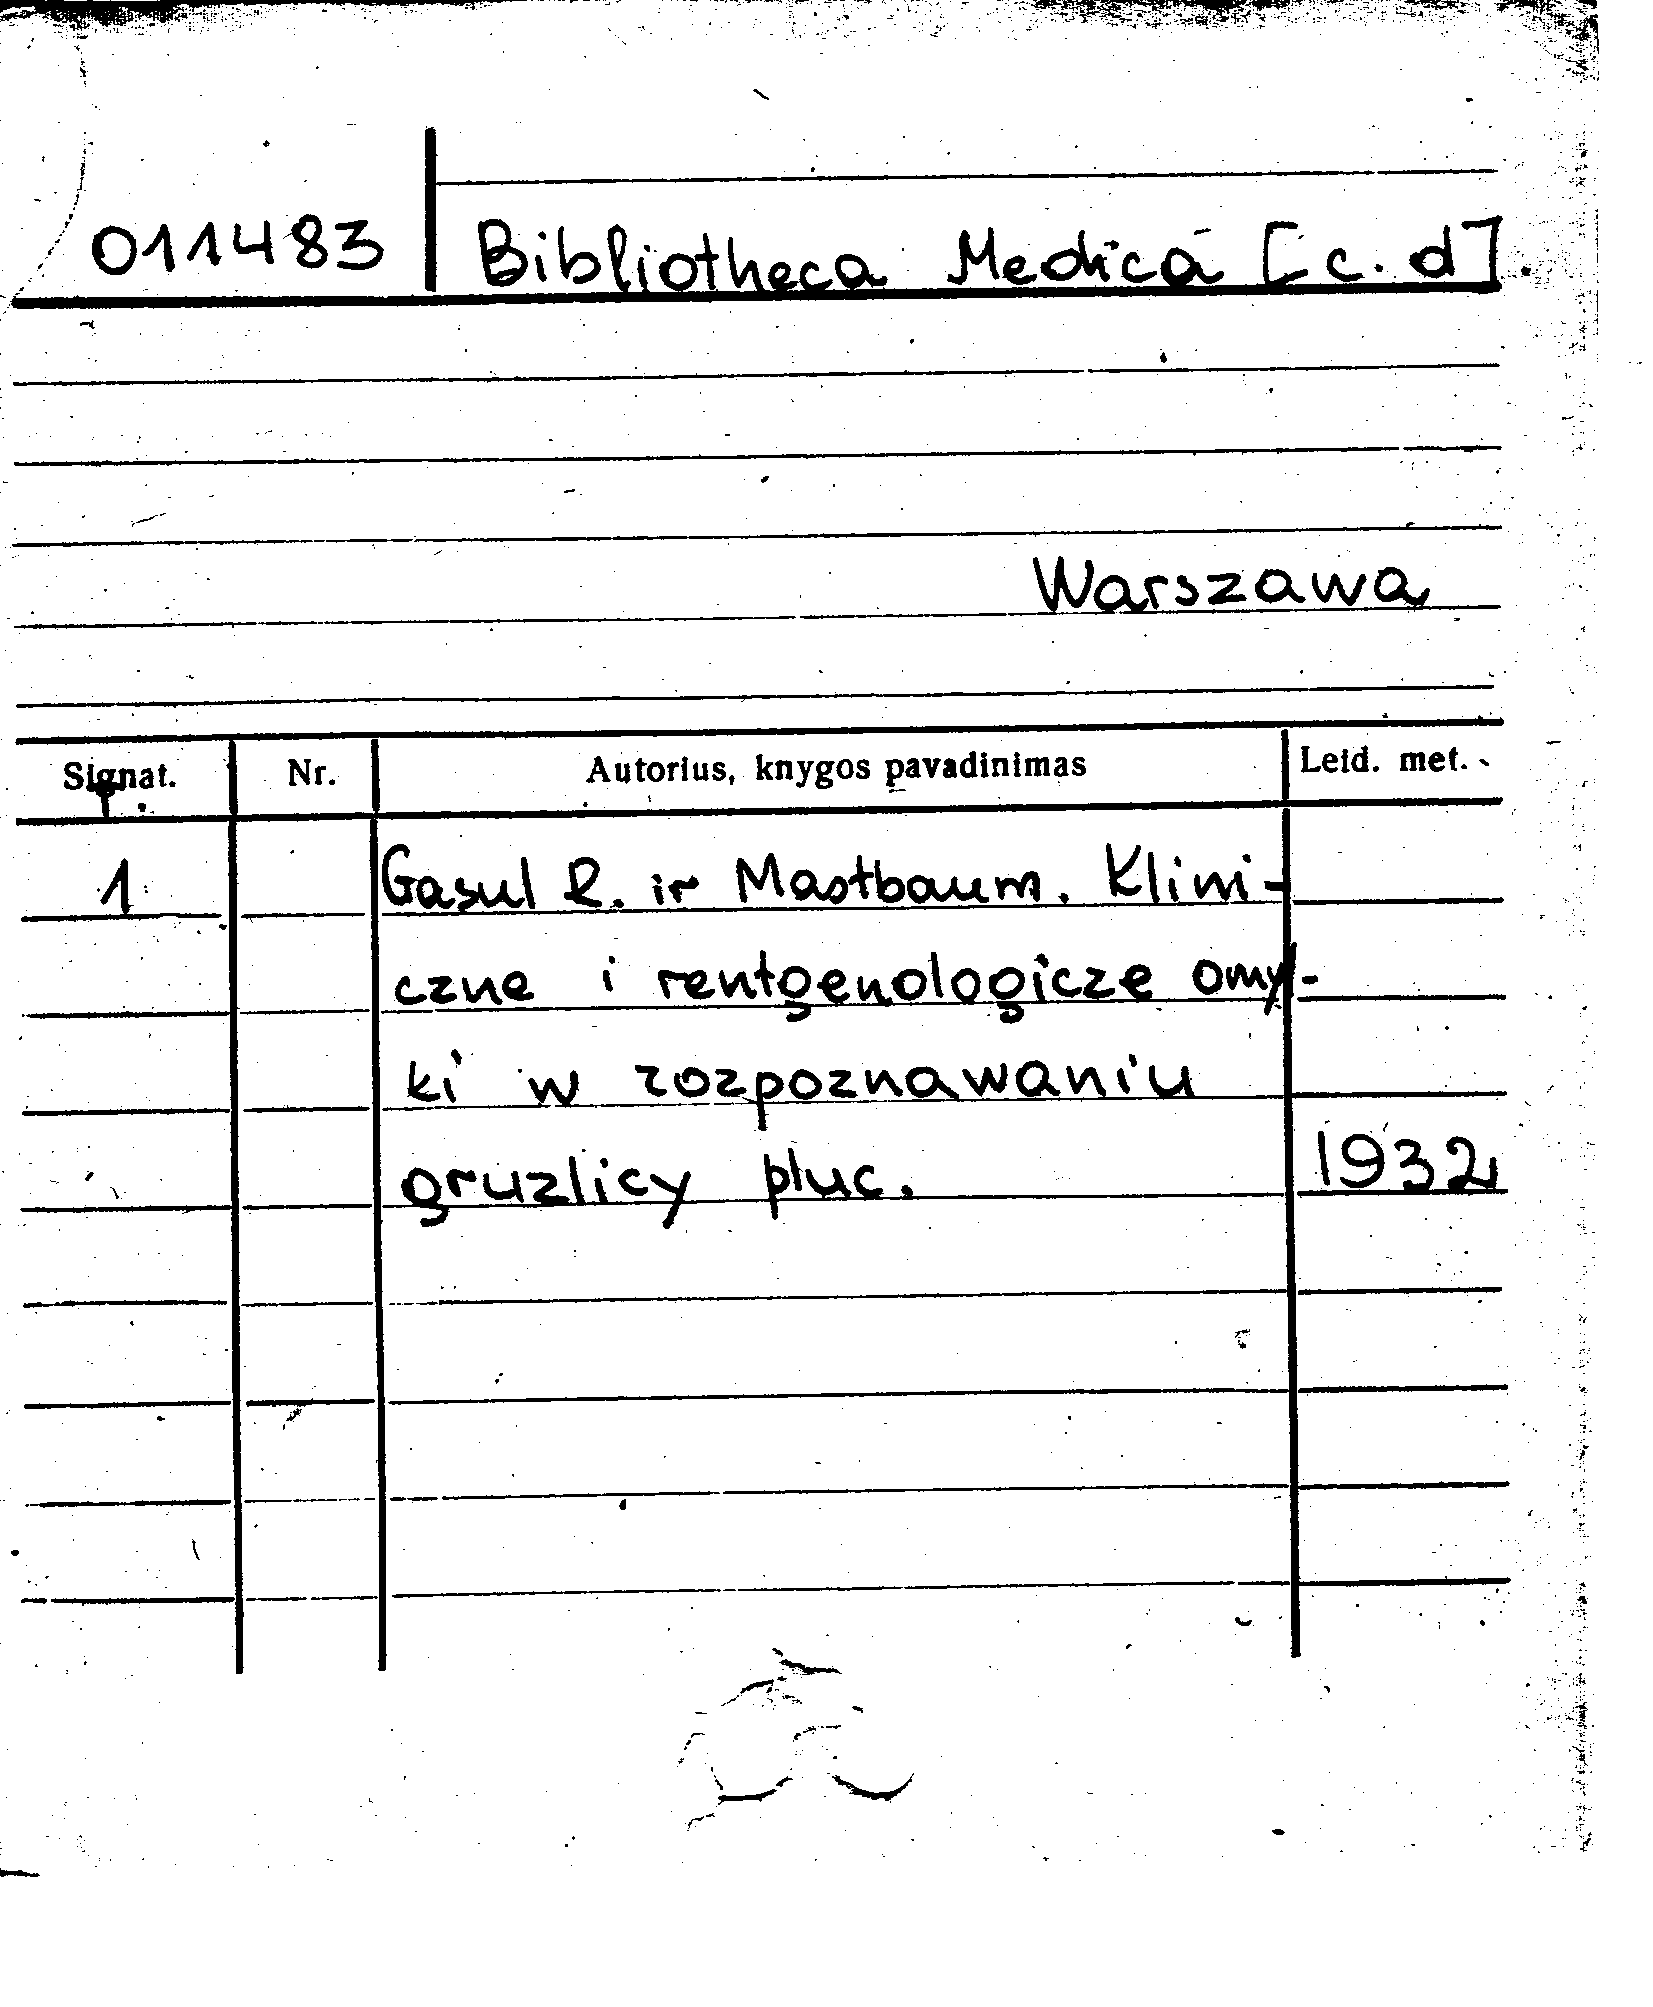 011483 Bibliotheca Medica [c. d].
Warszawa
Signat. Nr. Autorius, knygos pavadinimas Leid. met.
1 Gasul R. ir Mastbaum. Klini-
czne i rentgenologicze omy-
ki w rozpoznawaniu
gruzlicy pluc. 1932